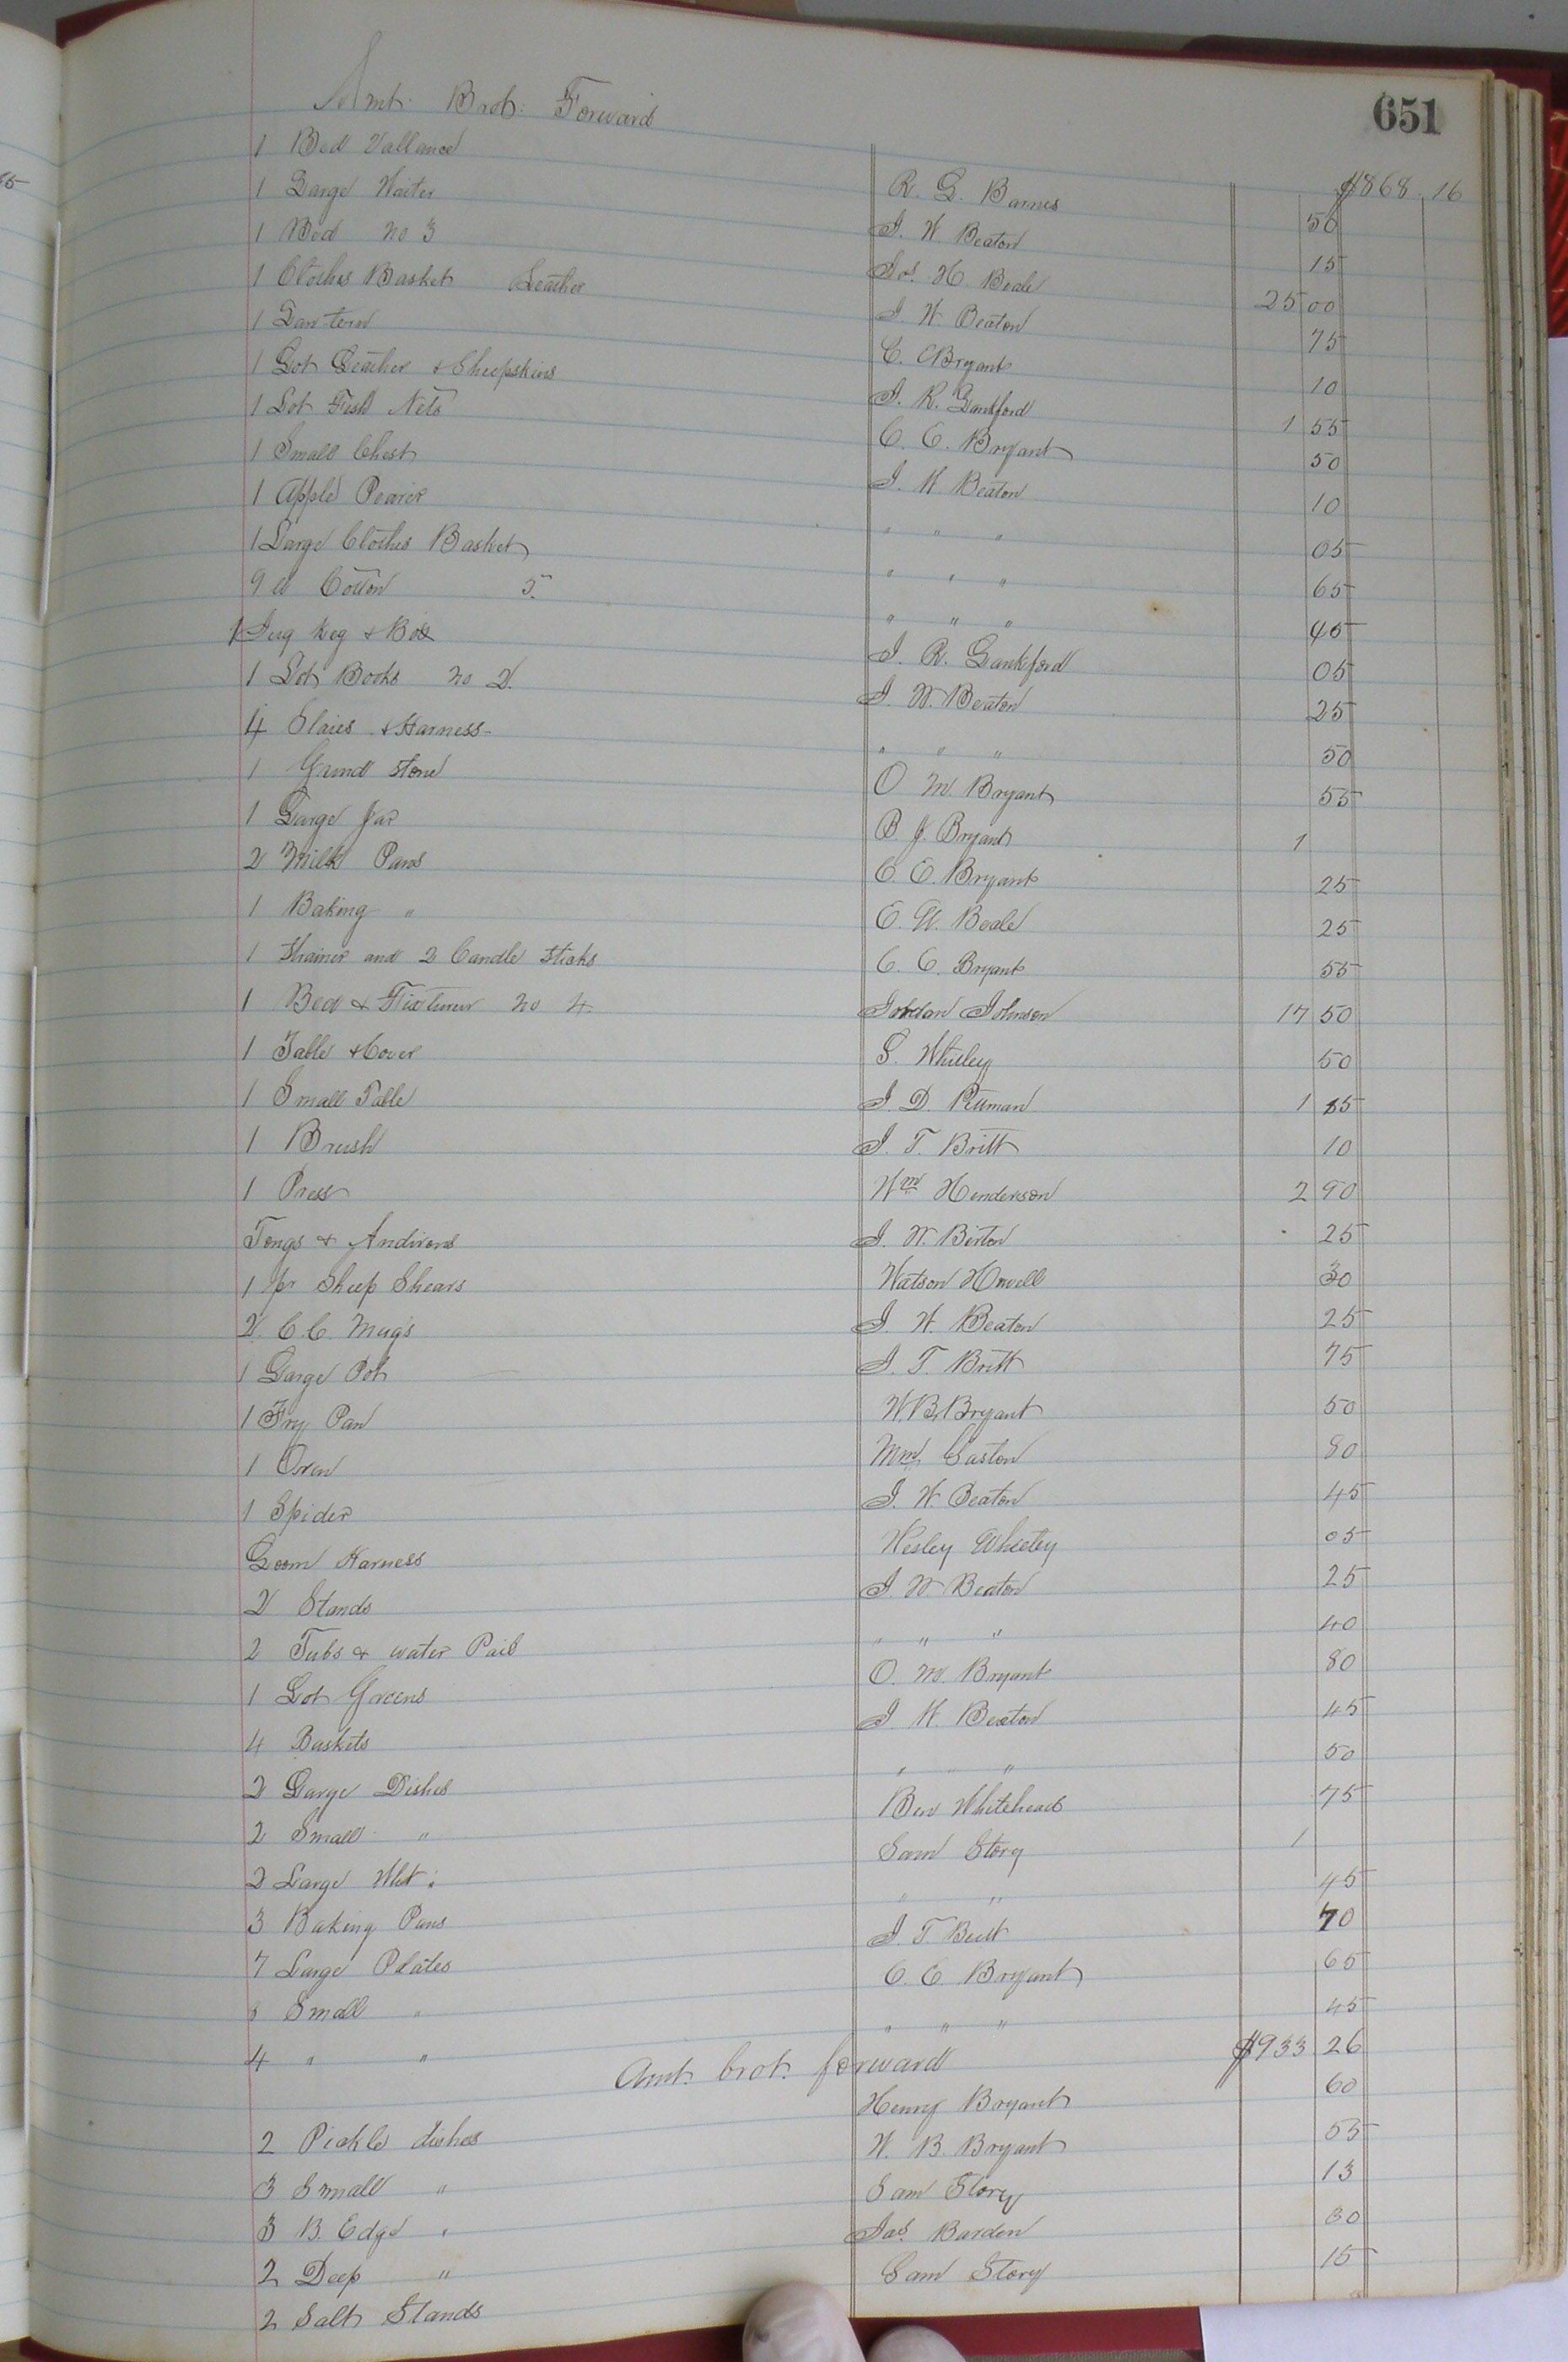 651
Amt. Brot: Forward $868.16
1 Bed Vallance R. G. Barnes 50
1 Large Waiter J. W. Beaton 15
1 Bed no 3 Jos. H. Beale 25 00
1 Clothes Basket Leather J. W. Beaton 75
1 Lantern C. C Bryant 10
1 Lot Leather & Sheepskins J. R. Lankford 1 55
1 Lot Fish Nets C. C. Bryant 50
1 Small Chest J. W Beaton 10
1 Apple Pearer " " " 05
1 Large Clothes Basket " " " 65
9 lb Cotton 5. " " " 45
1 Jug Keg & Box J. R. Lankford 05
1 Lot Books no 2. J. W. Beaton 25
4 Slaies & Harness " " " 50
1 Grind Stone O M Bryant 55
1 Large Jar B J. Bryant 1
2 Milk Pans C. C. Bryant 25
1 Baking " E. W. Beale 25
1 Strainer and 2 Candle Sticks C. C. Bryant 55
1 Bed & Fixtures no 4. Jordan Johnson 17 50
1 Table & Cover S. Whitley 50
1 Small Table J. D. Pittman 1 85
1 Brush J. T. Britt 10
1 Press Wm Henderson 2 90
Tongs & Andirons J. W. Beaton 25
1 pr Sheep Shears Watson Howell 30
2 C.C. Mug's J. W. Beaton 25
1 Large Pot J. T. Britt 75
1 Fry Pan W.B. Bryant 50
1 Oven Wm Gaston 80
1 Spider J. W Beaton 45
Loom Harness Wesley Wheeley 05
2 Stands J. W Beaton 25
2 Tubs & water Pail " " " 40
1 Lot Greens O. M. Bryant 80
4 Baskets J W. Beaton 45
2 Large Dishes " " " 50
2 Small " Ben Whitehead 75
2 Large Wht " Sam Story 1
3 Baking Pans " " 45
7 Large Plates J T. Britt 70
Small " C. C. Bryant 65
4 " " " " " 45
Amt. brot. forward $933 26
2 Pickle dishes Henry Bryant 60
3 Small " W. B. Bryant 55
3 B. Edge " Sam Story 13
2 Deep " Jas. Barden 30
2 Salt Stands Sam Story 15